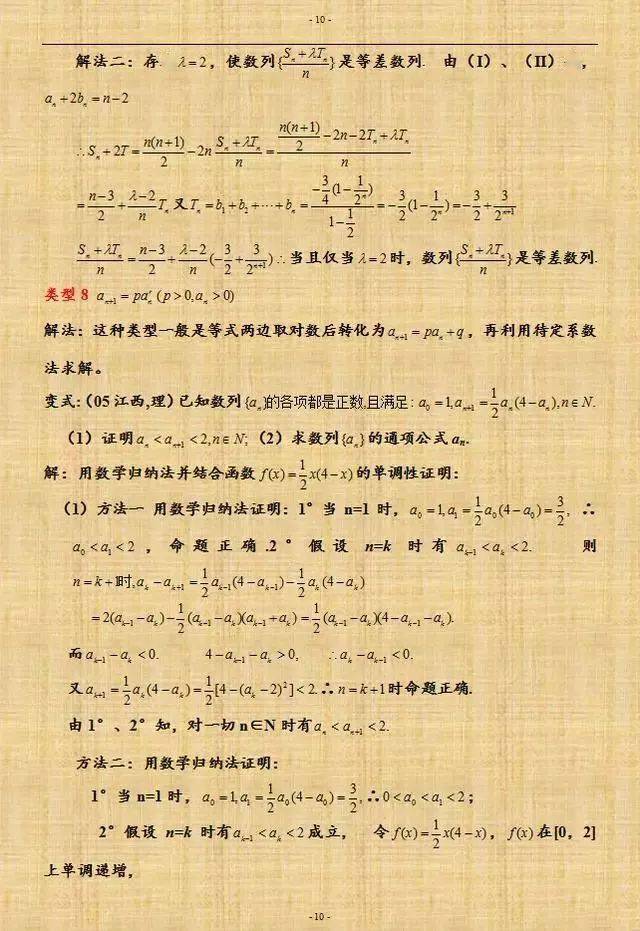 - 10 -
解法二：存 λ=2，使数列{(Sₙ+λTₙ)/n}是等差数列. 由（I）、（II），
aₙ+2bₙ=n-2
∴Sₙ+2T=n(n+1)/2-2n (Sₙ+λTₙ)/n=(n(n+1)/2-2n-2Tₙ+λTₙ)/n
=(n-3)/2+(λ-2)/n Tₙ又Tₙ=b₁+b₂+···+bₙ=(-3/4(1-1/2ⁿ))/(1-1/2)=-3/2(1-1/2ⁿ)=-3/2+3/2ⁿ⁺¹
(Sₙ+λTₙ)/n=(n-3)/2+(λ-2)/n(-3/2+3/2ⁿ⁺¹)∴当且仅当λ=2时，数列{(Sₙ+λTₙ)/n}是等差数列.
类型8 aₙ₊₁=paₙʳ(p>0,aₙ>0)
解法：这种类型一般是等式两边取对数后转化为aₙ₊₁=paₙ+q，再利用待定系数
法求解。
变式：（05江西,理）已知数列{aₙ}的各项都是正数,且满足：a₀=1,aₙ₊₁=1/2aₙ(4-aₙ),n∈N.
（1）证明aₙ<aₙ₊₁<2,n∈N;（2）求数列{aₙ}的通项公式aₙ.
解：用数学归纳法并结合函数f(x)=1/2x(4-x)的单调性证明：
（1）方法一 用数学归纳法证明：1°当n=1时，a₀=1,a₁=1/2a₀(4-a₀)=3/2, ∴
a₀<a₁<2，命题正确.2°假设n=k时有aₖ₋₁<aₖ<2. 则
n=k+1时,aₖ-aₖ₊₁=1/2aₖ₋₁(4-aₖ₋₁)-1/2aₖ(4-aₖ)
=2(aₖ₋₁-aₖ)-1/2(aₖ₋₁-aₖ)(aₖ₋₁+aₖ)=1/2(aₖ₋₁-aₖ)(4-aₖ₋₁-aₖ).
而aₖ₋₁-aₖ<0. 4-aₖ₋₁-aₖ>0, ∴aₖ-aₖ₋₁<0.
又aₖ₊₁=1/2aₖ(4-aₖ)=1/2[4-(aₖ-2)²]<2.∴n=k+1时命题正确.
由1°、2°知，对一切n∈N时有aₙ<aₙ₊₁<2.
方法二：用数学归纳法证明：
1°当n=1时，a₀=1,a₁=1/2a₀(4-a₀)=3/2,∴0<a₀<a₁<2；
2°假设n=k时有aₖ₋₁<aₖ<2成立， 令f(x)=1/2x(4-x)，f(x)在[0，2]
上单调递增，
- 10 -